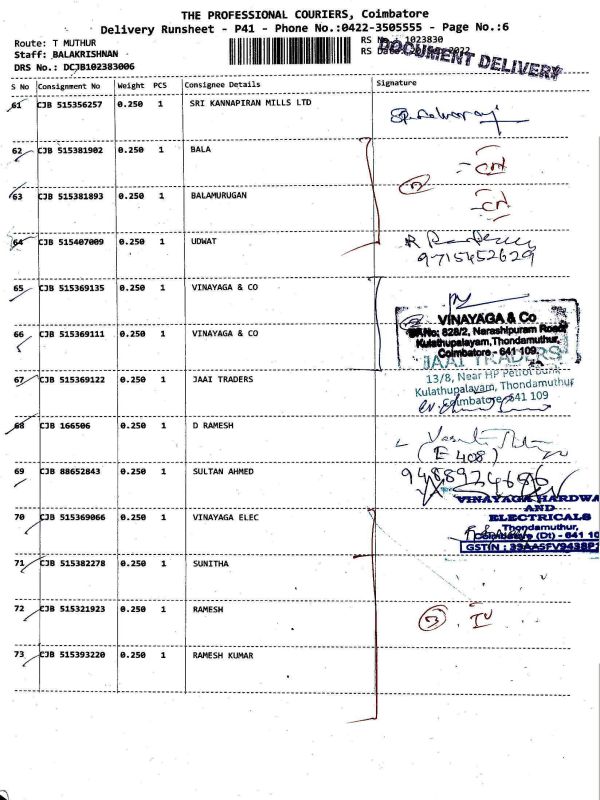 THE PROFESSIONAL COURIERS, Coimbatore
Delivery Runsheet - P41 - Phone No.:0422-3505555 - Page No.:6
Route: T MUTHUR
RS No.: 1023830
Staff: BALAKRISHNAN
RS Date
DOCUMENT DELIVERY
DRS No.: DCJB102383006
S No Consignment No Weight PCS Consignee Details Signature
61 CJB 515356257 0.250 1 SRI KANNAPIRAN MILLS LTD
62 CJB 515381902 0.250 1 BALA
63 CJB 515381893 0.250 1 BALAMURUGAN
64 CJB 515407009 0.250 1 UDWAT
9715452629
65 CJB 515369135 0.250 1 VINAYAGA & CO
VINAYAGA & Co
SF.No: 828/2, Narashipuram Road
66 CJB 515369111 0.250 1 VINAYAGA & CO
Kulathupalayam, Thondamuthur,
Coimbatore - 641 109.
JAAI TRADERS
67 CJB 515369122 0.250 1 JAAI TRADERS
13/8, Near HP Petrol Bunk
Kulathupalayam, Thondamuthur
Coimbatore-641 109
68 CJB 166506 0.250 1 D RAMESH
(E 408)
69 CJB 88652843 0.250 1 SULTAN AHMED
VINAYAGA HARDWA
AND
ELECTRICALS
70 CJB 515369066 0.250 1 VINAYAGA ELEC
Thondamuthur,
Coimbatore (Dt) - 641 10
GSTIN :
71 CJB 515382278 0.250 1 SUNITHA
72 CJB 515321923 0.250 1 RAMESH
73 CJB 515393220 0.250 1 RAMESH KUMAR